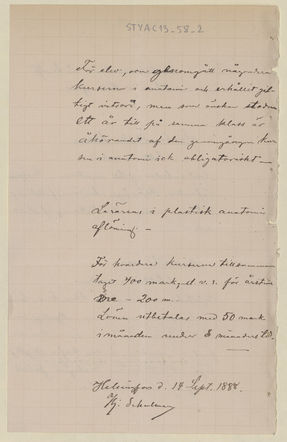 STYAC13-58-2
För elev, som genomgått nämnda
kursen i anatomi och erhållit gil-
tigt vitsord, men som önskar stadna
ett år till på samma klass är
åhörandet af den genomgångna kur
sen i anatomi ick obligatoriskt —
Lärarens i plastisk anatomi
aflöning. —
För hvardera kurserna tillsammans
taget 400 mark, d. v. s. för
— 200 m.
Lönen utbetalas med 50 mark
i månaden under 8 månaders tid.
Helsingfors d. 14 Sept. 1888.
Hj.